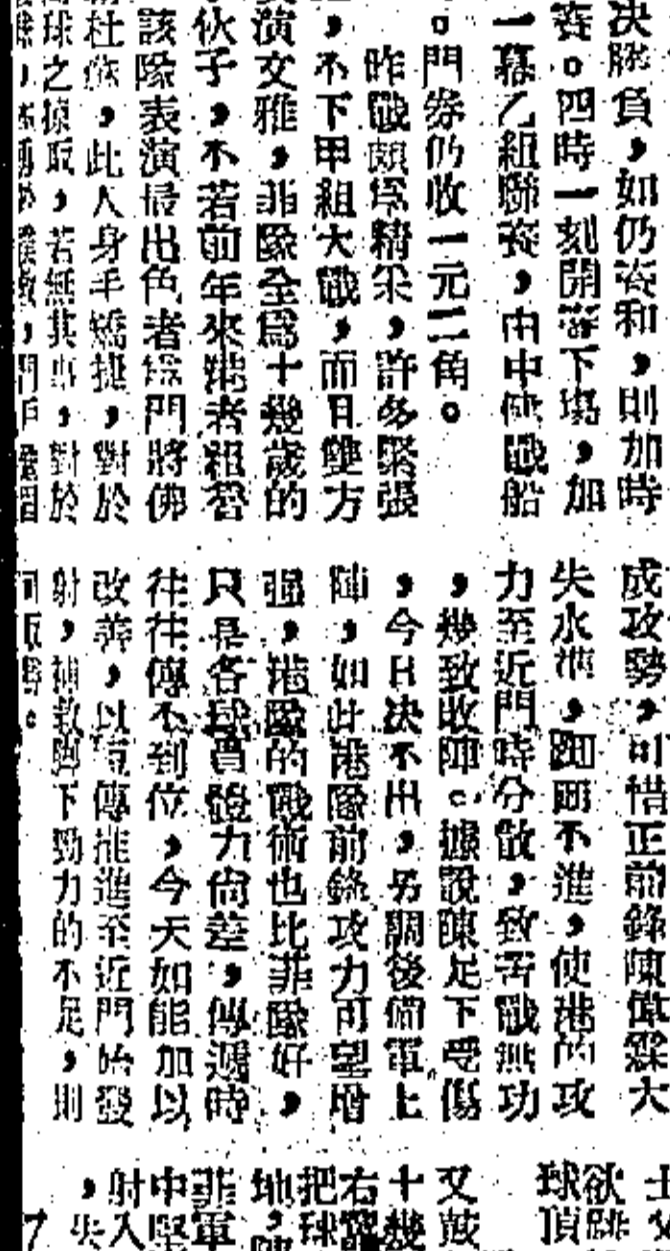 决勝負，如仍賽和，則加時
賽。四時一刻開賽下場，加
一幕乙組聯賽，由中航戰船
。門券仍收一元二角。
昨戰頗為精采，許多緊張
，不下甲組大戰，而且雙方
演文雅，菲隊全為十幾歲的
伙子，不若前年來港者粗魯
該隊表演最出色者為門將佛
杜蘇，此人身手矯捷，對於
球之掠取，若無其事，對於
成攻勢，可惜正前鋒陳偉霖大
失水準，而不進，使港的攻
力至近門時分散，致苦戰無功
，幾致收陣。據說陳足下受傷
，今日決不出，另調後備軍上
陣，如此港隊前鋒攻力可望增
强，港隊的戰術也比菲隊好，
只是各球員體力尚差，傳遞時
往往傳不到位，今天如能加以
改善，以短傳推進至近門始發
射，補救脚下勁力的不足，則
可取勝。
欲
球頂
又
十幾
右翼
把球
地，
菲軍
中堅
射入
，失